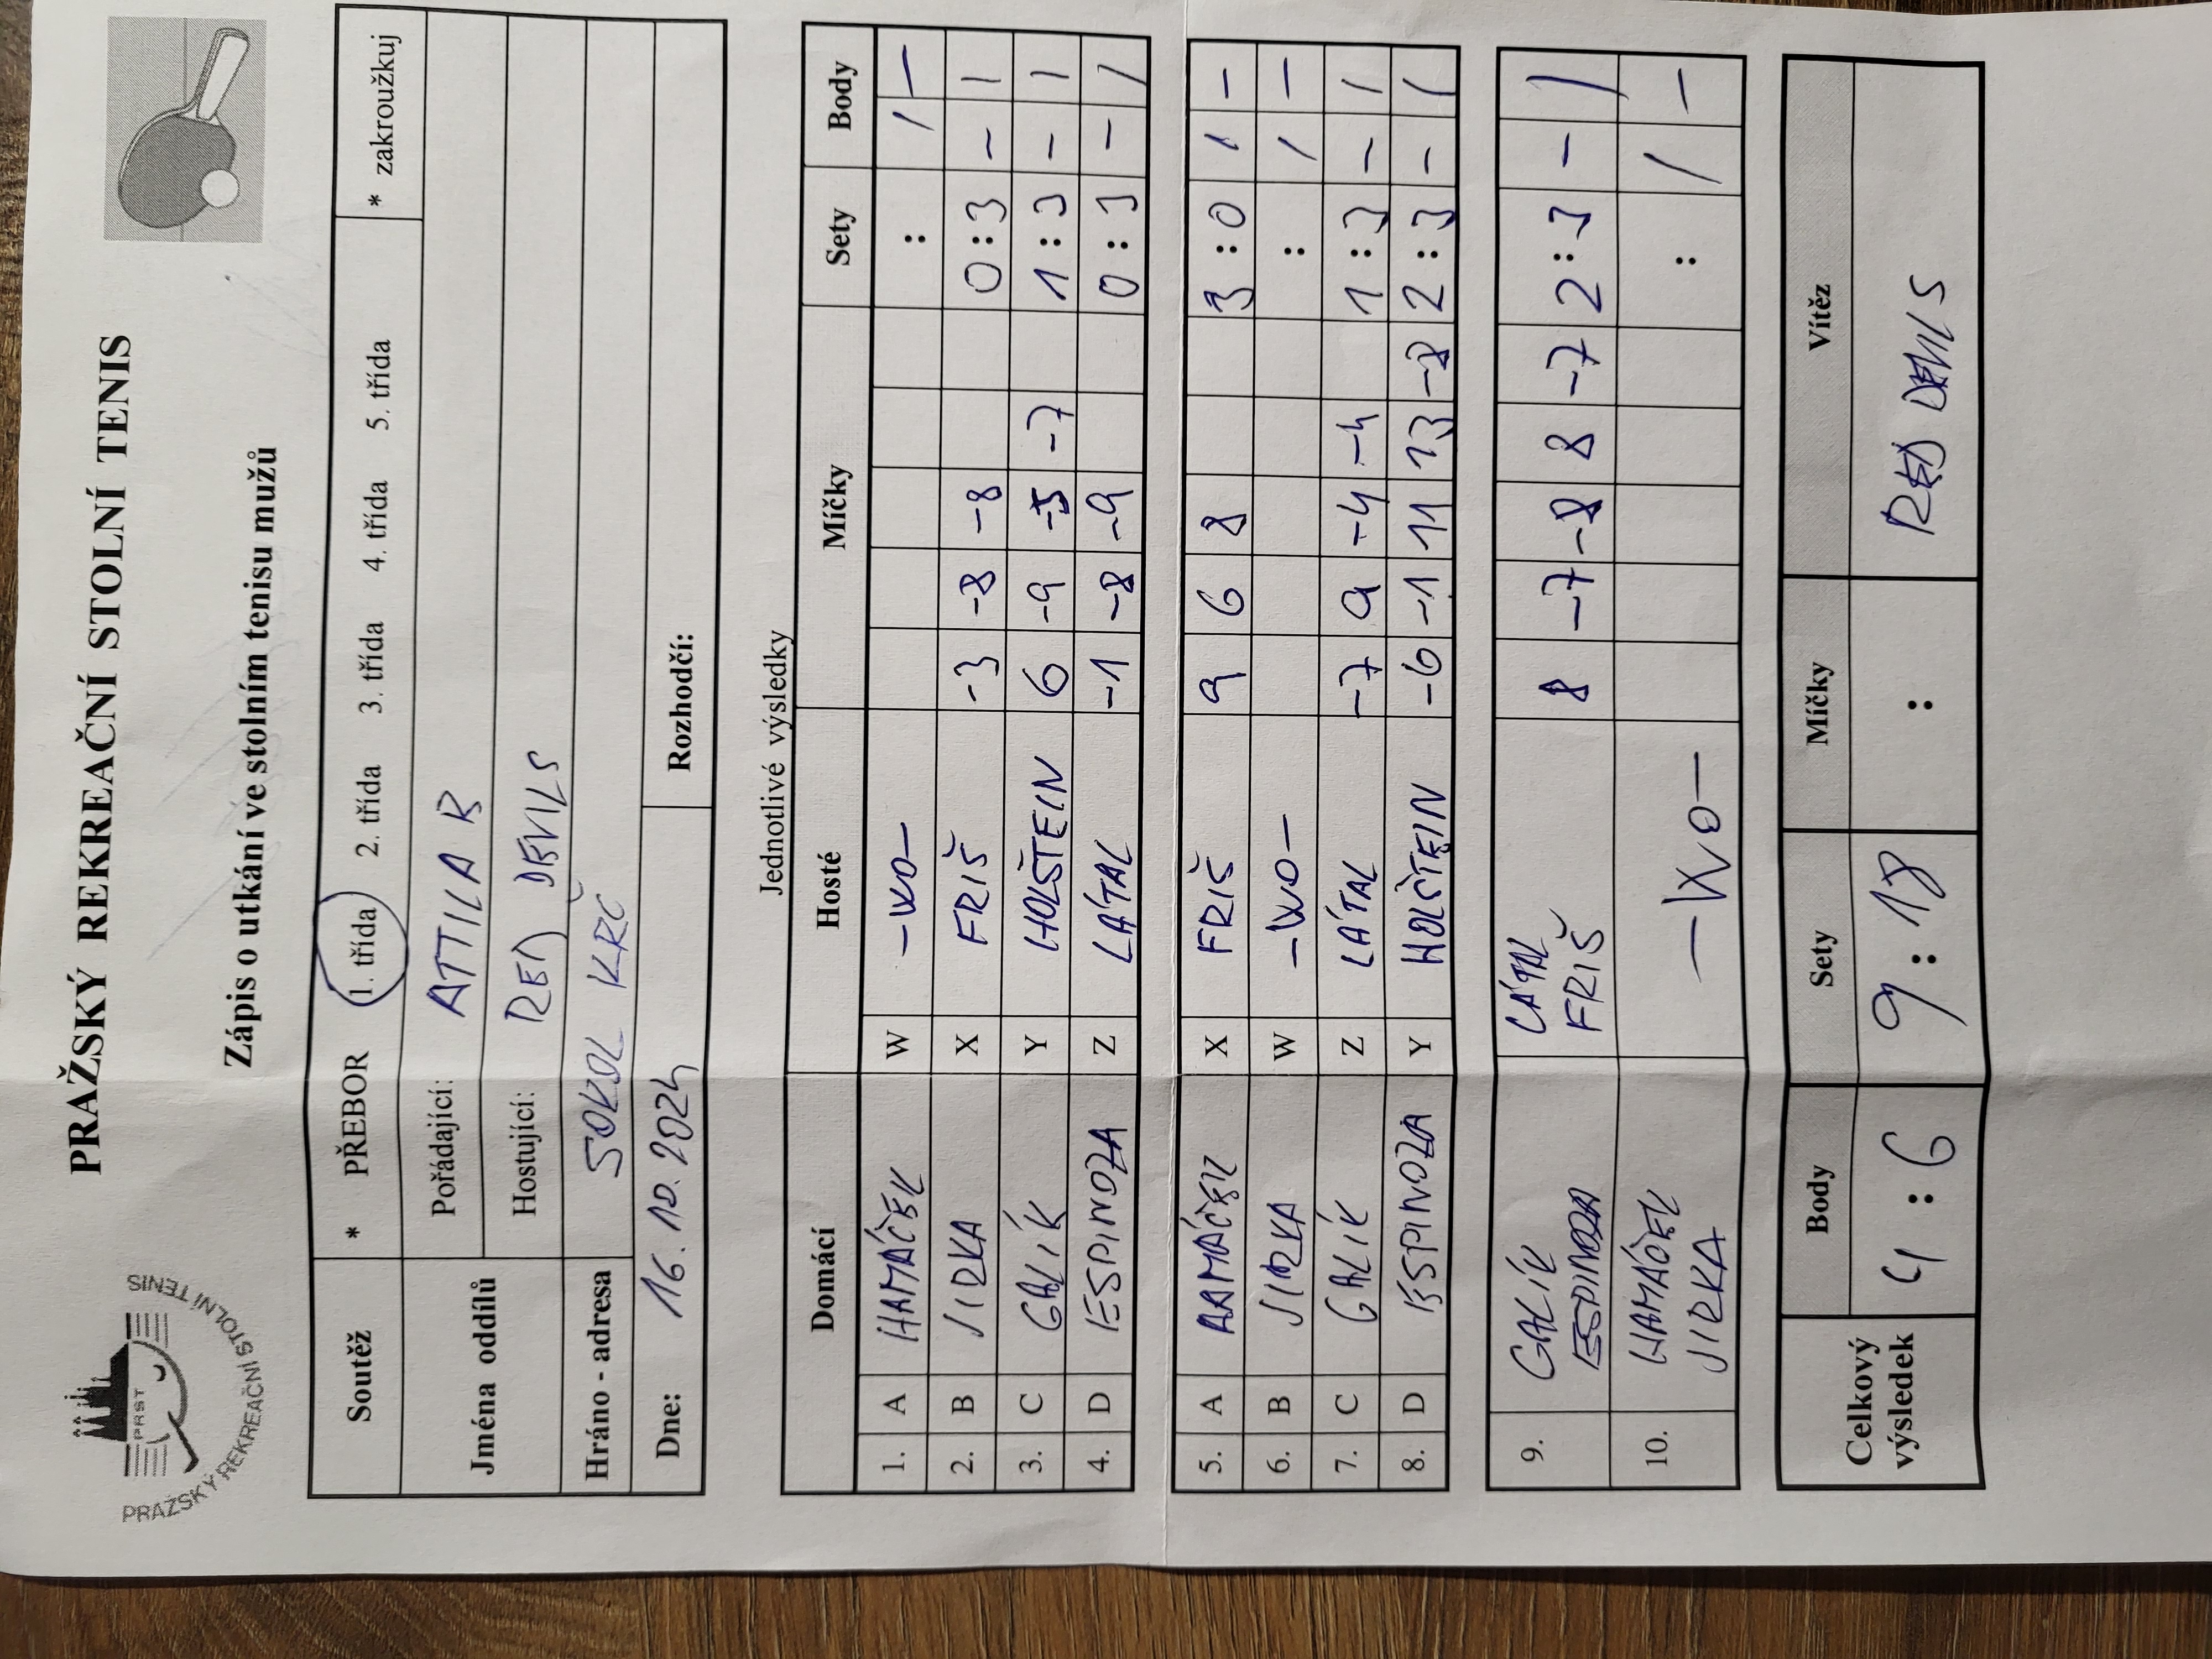 PRAŽSKÝ REKREAČNÍ STOLNÍ TENIS
PRST
PRAŽSKÝ REKREAČNÍ STOLNÍ TENIS
Zápis o utkání ve stolním tenisu mužů
Soutěž * PŘEBOR 1. třída 2. třída 3. třída 4. třída 5. třída * zakroužkuj
Jména oddílů Pořádající: ATTILA B
Hostující: RED DEVILS
Hráno - adresa SOKOL KRČ
Dne: 16.10.2024 Rozhodčí:
Jednotlivé výsledky
Domácí Hosté Míčky Sety Body
1. A HAMÁČEK W -WO- : / -
2. B JIRKA X FRIŠ -3 -8 -8 0:3 - /
3. C GALÍK Y HOLŠTEIN 6 -9 -5 -7 1:3 - /
4. D ESPINOZA Z LÁTAL -1 -8 -9 0:3 - /
5. A HAMÁČEK X FRIŠ 9 6 8 3:0 / -
6. B JIRKA W -WO- : / -
7. C GALÍK Z LÁTAL -7 9 -4 -4 1:3 - /
8. D ESPINOZA Y HOLŠTEIN -6 -1 11 13 -8 2:3 - /
9. GALÍK ESPINOZA LÁTAL FRIŠ 8 -7 -8 8 -7 2:3 - /
10. HAMÁČEK JIRKA -WO- : / -
Celkový výsledek Body Sety Míčky Vítěz
4:6 9:18 : RED DEVILS